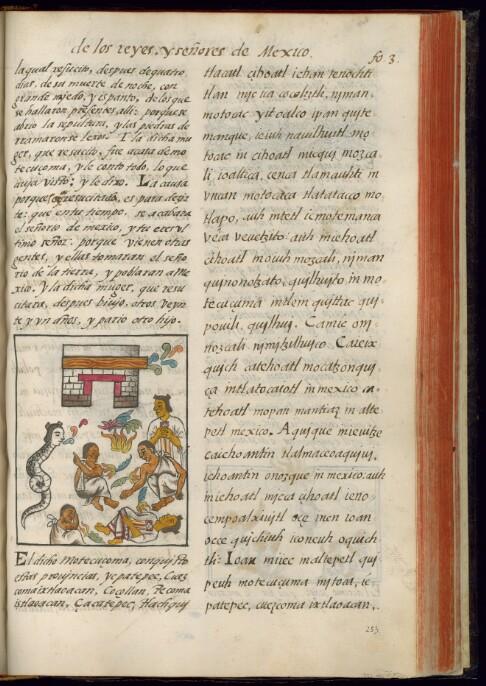 de los reyes, y señores de Mexico.
fo 3.
laqual resucito, despues de quatro
dias, de su muerte de noche, con
grande miedo, y espanto, de los que
se hallaron presentes alli: porque se
abrio la sepultura, y las piedras de
rramaronse lexos. Y la dicha mu
ger, que resucito, fue a casa de mo
tecuçoma, y le conto todo, lo que
auja visto: y le dixo. La causa
porque he resucitado, es para dezir
te: que en tu tiempo, se acabara
el señorio de mexico, y tu eres vl
timo señor: porque vienen otras
gentes, y ellas tomaran el seño
rio de la tierra, y poblaran a Me
xico. Y la dicha muger, que resu
citara, despues biujo, otros veyn
te y vn años, y pario otro hijo.
El dicho Motecuçoma, conquisto
estas proujncias, ycpatepec, Cuez
comaixtlaoacan, Coçollan, Tecoma
ixtlaoacan, Çacatepec, Tlachquj
tlacatl cihoatl ichan tenochti
tlan mjcica cocoliztli, njman
motocac yitoalco ipan quite
manque, ieiuh nauilhuitl mo
tocac in cihoatl micquj mozca
li, ioaltica, cenca tlamauhti in
vncan motocaca tlatataco mo
tlapo, auh in tetl ic motemanca
veca veuetzito: auh in iehoatl
cihoatl in ouh mozcali, njman
qujnonotzato, qujlhujto in mo
tecuçuma in tlein qujttac quj
pouili, qujlhuj. Ca nic on
nozcali njmjtzilhujco. Ca ie ix
qujch ca tehoatl mocatzonquj
ça in tlatocaiotl in mexico ca
tehoatl mopan mantiaz in alte
petl mexico. Aqujque in ie vitze
ca iehoantin tlalmaceoaquiuj,
iehoantin onozque in mexico: auh
in iehoatl mjcca cihoatl ie no
cempoalxiujtl oce in en ioan
occe qujchiuh iconeuh oqujch
tli: Ioan mjiec in altepetl quj
peuh motecuçuma injs oat, ic
patepec, cuezcoma ixtlaoacan,
253